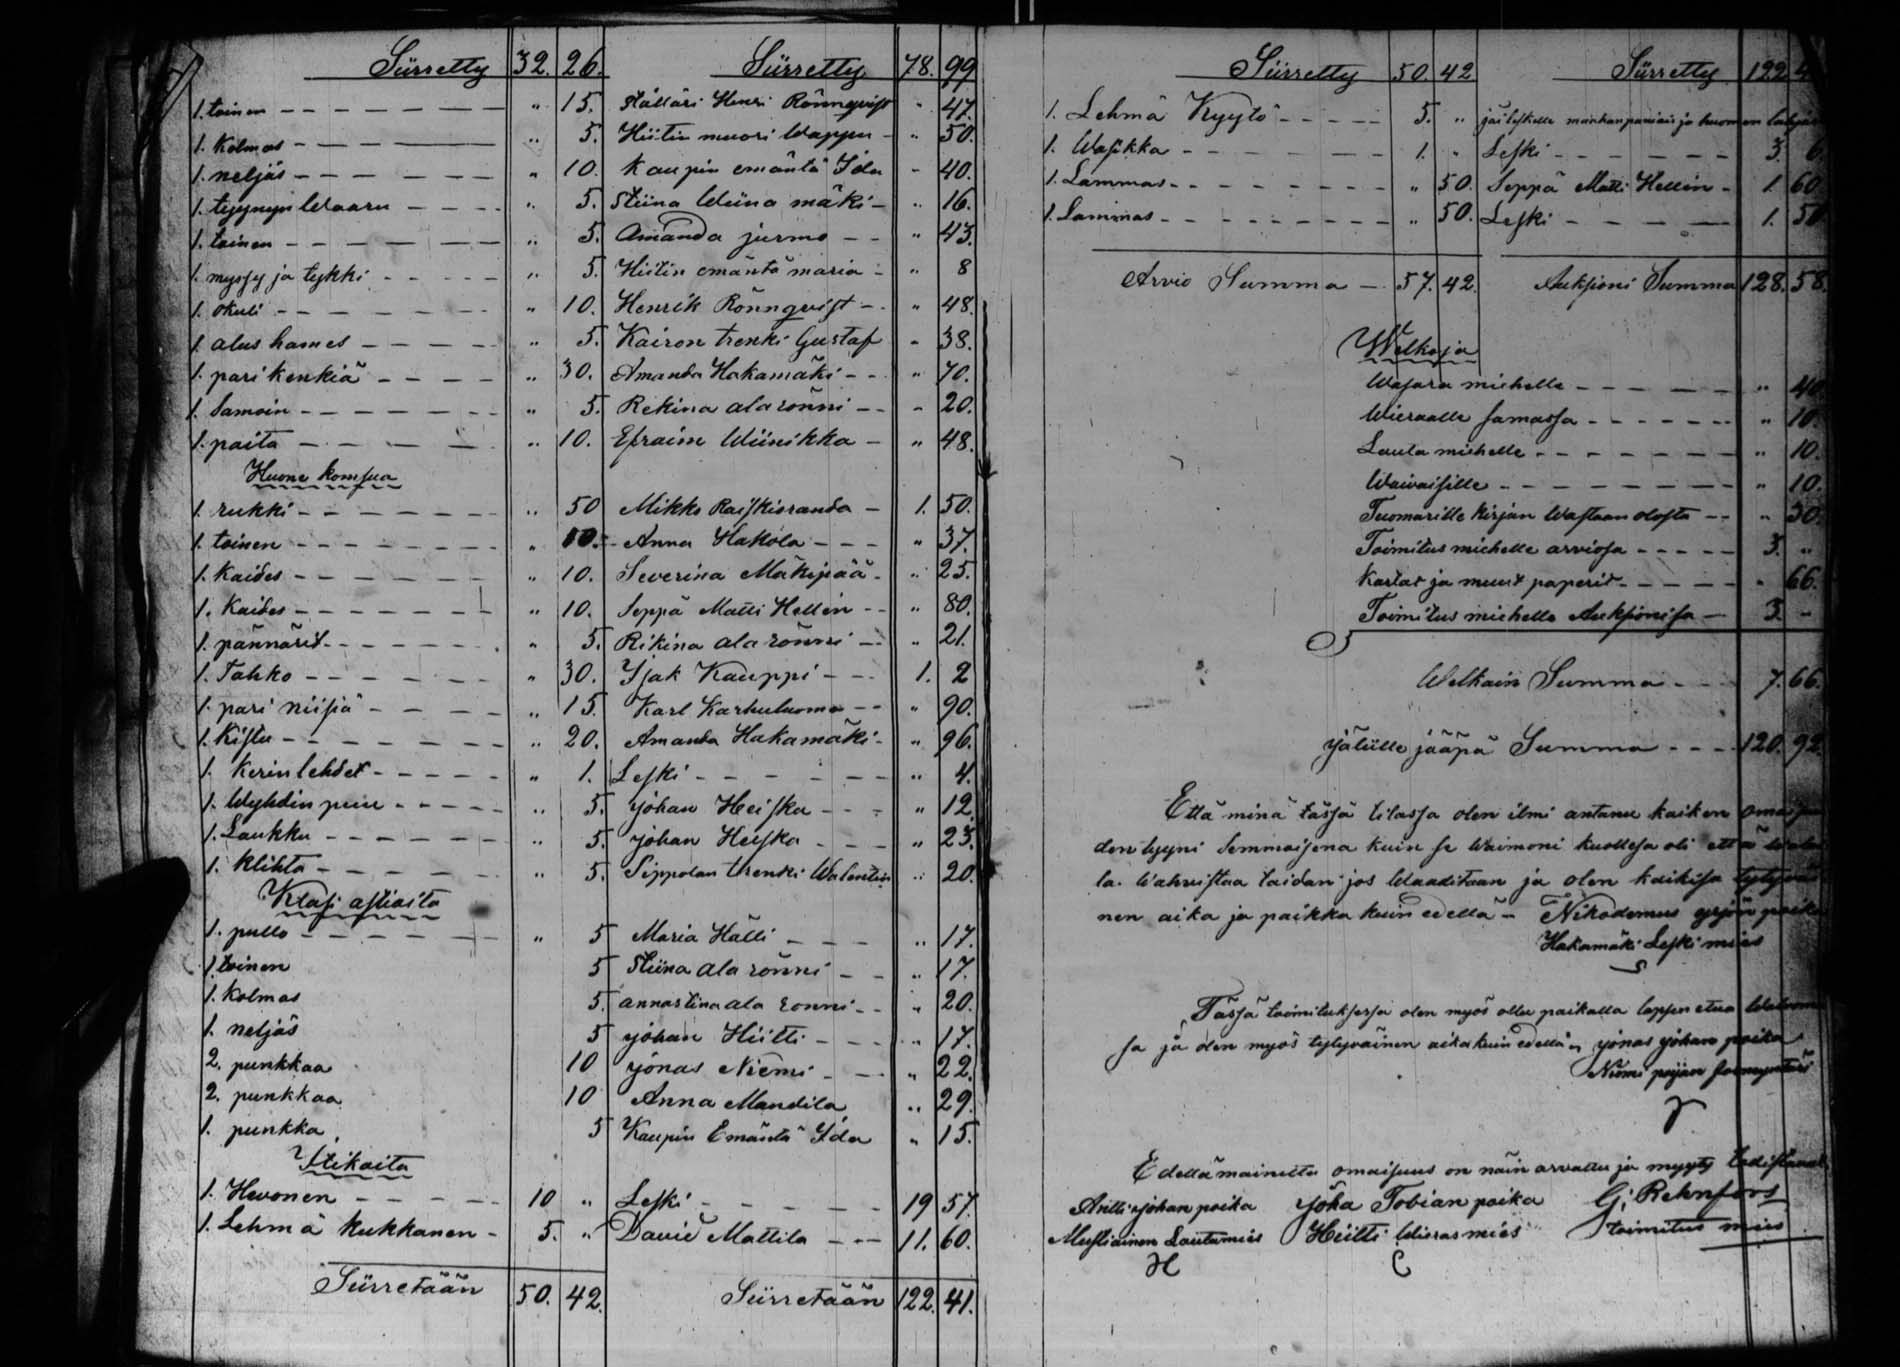 Siirretty 32. 26. Siirretty 78. 99
1. toinen — " 15. Hälläri Henri Rönnqvist " 47.
1. Kolmas — " 5. Hiitin muori Wappu — " 50.
1. neljäs — " 10. Kaupin emäntä Ida - 40.
1. tyynyn Waaru — " 5. Stiina Wiina mäki — " 16.
1. toinen — " 5. Amanda jurmo — " 43.
1. myssy ja tykki — " 5. Hiitin emäntä maria — " 8
1. okuli — " 10. Henrik Rönnqvist — " 48.
1. alus hames — " 5. Kairon trenki Gustaf - 38.
1. pari kenkiä — " 30. Amanda Hakamäki — " 70.
1. Samoin — " 5. Rekina ala rönni — " 20.
1. paita — " 10. Efraim Wiinikka — " 48.
Huone komsua
1. rukki — " 50 Mikko Raiskioranda — 1. 50.
1. toinen — " 10. Anna Hakola — " 37.
1. Kaides — " 10. Severina Mäkipää - " 25.
1. Kaides — " 10. Seppä Matti Hellin — " 80.
1. pännärit — " 5. Rikina ala rönni — " 21.
1. Tahko — " 30. Isak Kauppi — 1. 2
1. pari niisiä — " 15. Karl Karhuluoma — " 90.
1. Kistu — " 20. Amanda Hakamäki - " 96.
1. Kerinlehdet — " 1. Leski — " 4.
1. Wyhdin puu — " 5. Johan Heiska — " 12
1. Laukku — " 5. Johan Heiska — " 23.
1. klihta — " 5. Sippolan trenki Walentin " 20.
Klasi astioita
1. pullo — " 5 Maria Hälli — " 17.
1. toinen 5 Stiina ala rönni — " 17.
1. Kolmas 5. annastina ala ronni — " 20.
1. neljäs 5 Johan Hiitti — " 17.
2. punkkaa 10 Jonas Niemi — " 22.
2. punkkaa 10 Anna Mandila " 29.
1. punkka 5 Kaupin Emäntä Ida " 15.
Itikoita
1. Hevonen — 10 " Leski — 19 57.
1. Lehmä kukkanen - 5. " David Mattila — 11. 60.
Siirretään 50. 42. Siirretään 122. 41.
Siirretty 50. 42 Siirretty 122
1. Lehmä Kyytö — 5. " jäi leskelle
1. Wasikka — 1. " Leski — 3. 6.
1. Lammas — " 50. Seppä Matti Hellin - 1. 60.
1. Lammas — " 50. Leski — 1. 50
Arvio Summa — 57. 42. Auksioni Summa 128. 58.
Welkoja
Wasara miehelle — " 40
Wieraalle samassa — " 10.
Lauta miehelle — " 10.
Waivaisille — " 10.
Tuomarille kirjan Wastaan olosta — " 30.
Toimitus miehelle arviosa — 3. "
Kartat ja muut paperit — " 66.
Toimitus miehelle Auksionisa — 3. -
Welkain Summa — 7. 66.
Jälille jääpä Summa — 120. 92
Että minä tässä tilassa olen ilmi antanu kaiken
den tyyni Semmoisena kuin se Waimoni kuollesa oli että
la Wahvistaa taidan jos Waaditaan ja olen kaikisa tytyväi
nen aika ja paikka kuin edellä - Nikodemus yrjön poika
Hakamäki Leski mies
Tässä toimituksessa olen myös ollu paikalla lapsen etua
sa ja olen myös tytyväinen aika kuin edellä " Jonas Johan poika
Niemi
Edellämainettu omaisuus on näin arvattu ja myyty todistavat
Antti Johan poika Joha Tobian poika G: Rehnfors
Mustiainen Lautamies Hiitti Wieras mies toimitus mies